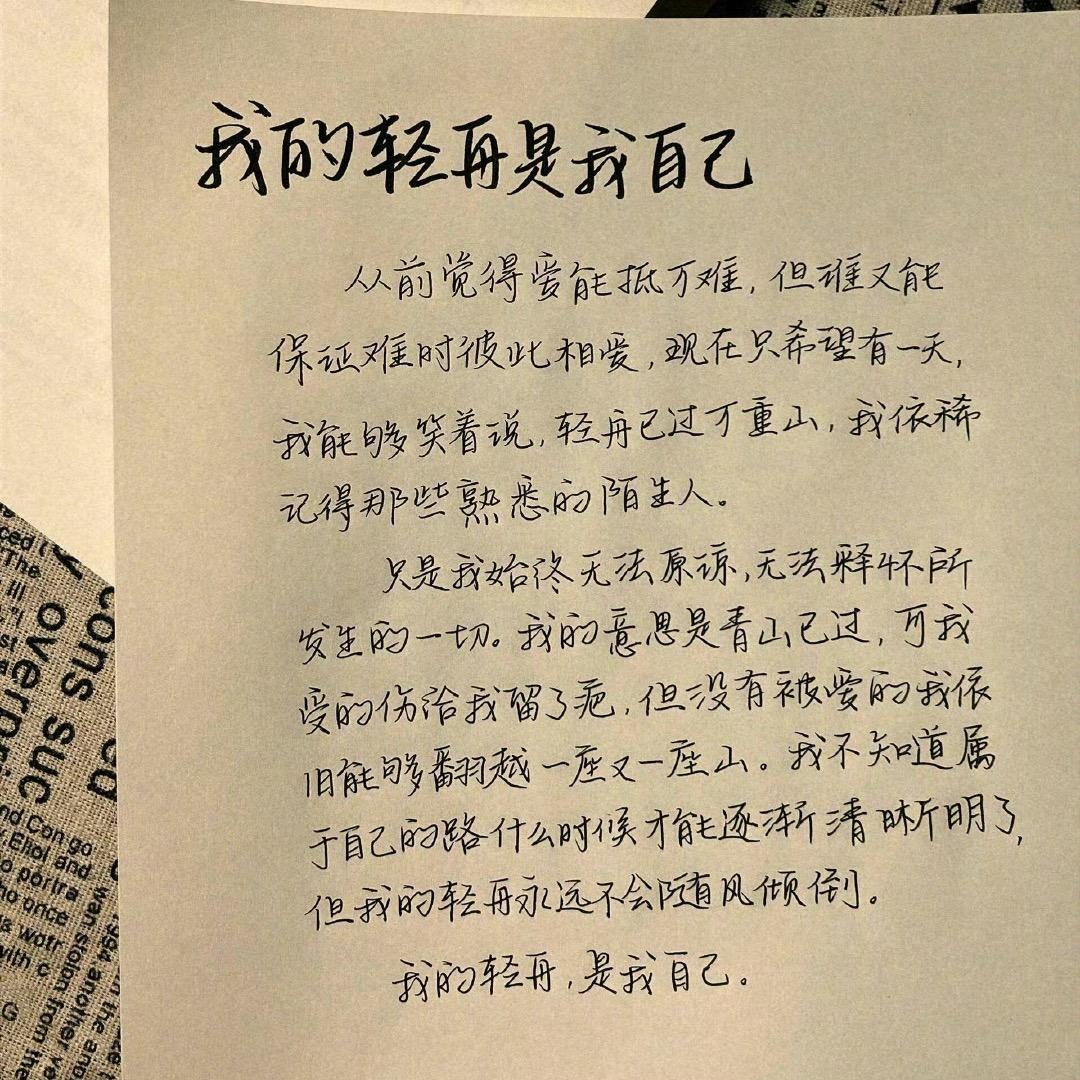 我的轻舟是我自己
从前觉得爱能抵万难，但谁又能
保证难时彼此相爱，现在只希望有一天，
我能够笑着说，轻舟已过万重山，我依稀
记得那些熟悉的陌生人。
只是我始终无法原谅，无法释怀所
发生的一切。我的意思是青山已过，可我
受的伤给我留了疤，但没有被爱的我依
旧能够翻越一座又一座山。我不知道属
于自己的路什么时候才能逐渐清晰明了，
但我的轻舟永远不会随风倾倒。
我的轻舟，是我自己。
cons
overpri
suc
The
nd Con go
Ekol and
o portra
ho once
s wotr
with c
G
1994 another
wan stolen from the
another ve
from the